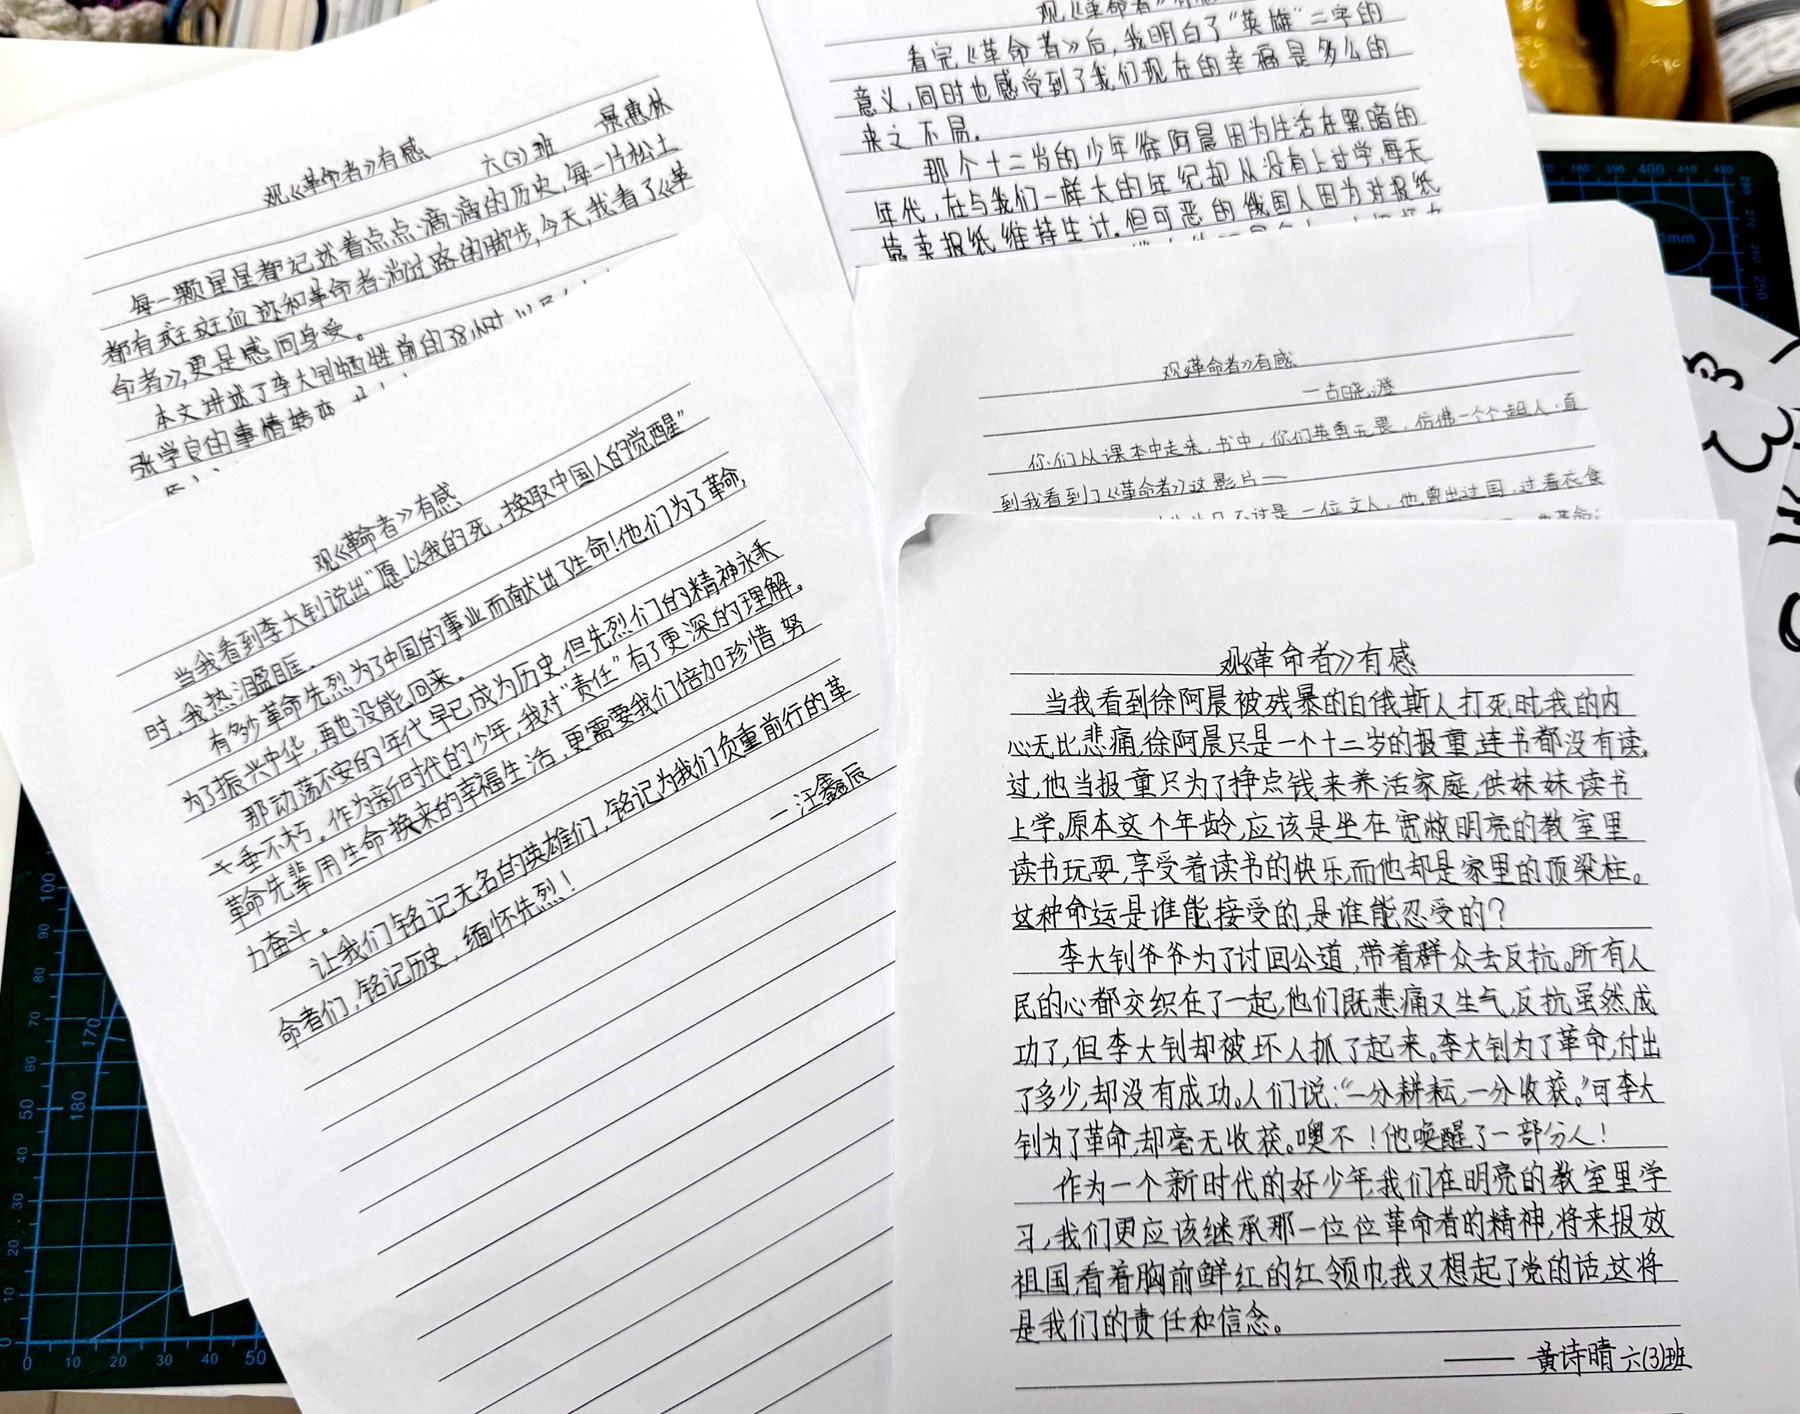 观《革命者》有感
六(3)班 景惠林
每一颗星星都记述着点点滴滴的历史,每一片松土
都有斑斑血迹和革命者淌过路的脚步,今天,我看了《革
命者》,更是感同身受。
本文讲述了李大钊牺牲前的38小时
张学良的事情
观《革命者》有感
看完《革命者》后,我明白了“英雄”二字的
意义,同时也感受到了我们现在的幸福是多么的
来之不易.
那个十二岁的少年徐阿晨因为生活在黑暗的
年代,在与我们一样大的年纪却从没有上过学,每天
靠卖报纸维持生计.但可恶的俄国人因为对报纸
观《革命者》有感
当我看到李大钊说出“愿以我的死,换取中国人的觉醒”
时,我热泪盈眶.
有多少革命先烈为了中国的事业而献出了生命!他们为了革命,
为了振兴中华,再也没能回来.
那动荡不安的年代早已成为历史,但先烈们的精神永永
千垂不朽。作为新时代的少年,我对“责任”有了更深的理解。
革命先辈用生命换来的幸福生活,更需要我们倍加珍惜,努
力奋斗。
让我们铭记无名的英雄们,铭记为我们负重前行的革
命者们,铭记历史,缅怀先烈!
—汪鑫辰
观《革命者》有感
—古晓澄
你们从课本中走来,书中,你们英勇无畏,仿佛一个个超人.直
到我看到了《革命者》这影片—
不过是一位文人,他曾出过国,过着衣食
观《革命者》有感
当我看到徐阿晨被残暴的白俄斯人打死时,我的内
心无比悲痛,徐阿晨只是一个十二岁的报童,连书都没有读
过,他当报童只为了挣点钱来养活家庭,供妹妹读书
上学。原本这个年龄,应该是坐在宽敞明亮的教室里
读书玩耍,享受着读书的快乐,而他却是家里的顶梁柱。
这种命运是谁能接受的,是谁能忍受的?
李大钊爷爷为了讨回公道,带着群众去反抗。所有人
民的心都交织在了一起,他们既悲痛又生气,反抗虽然成
功了,但李大钊却被坏人抓了起来。李大钊为了革命,付出
了多少,却没有成功。人们说:“一分耕耘,一分收获。”可李大
钊为了革命,却毫无收获。噢不!他唤醒了一部分人!
作为一个新时代的好少年,我们在明亮的教室里学
习,我们更应该继承那一位位革命者的精神,将来报效
祖国,看着胸前鲜红的红领巾,我又想起了党的话,这将
是我们的责任和信念。
—— 黄诗晴 六(3)班